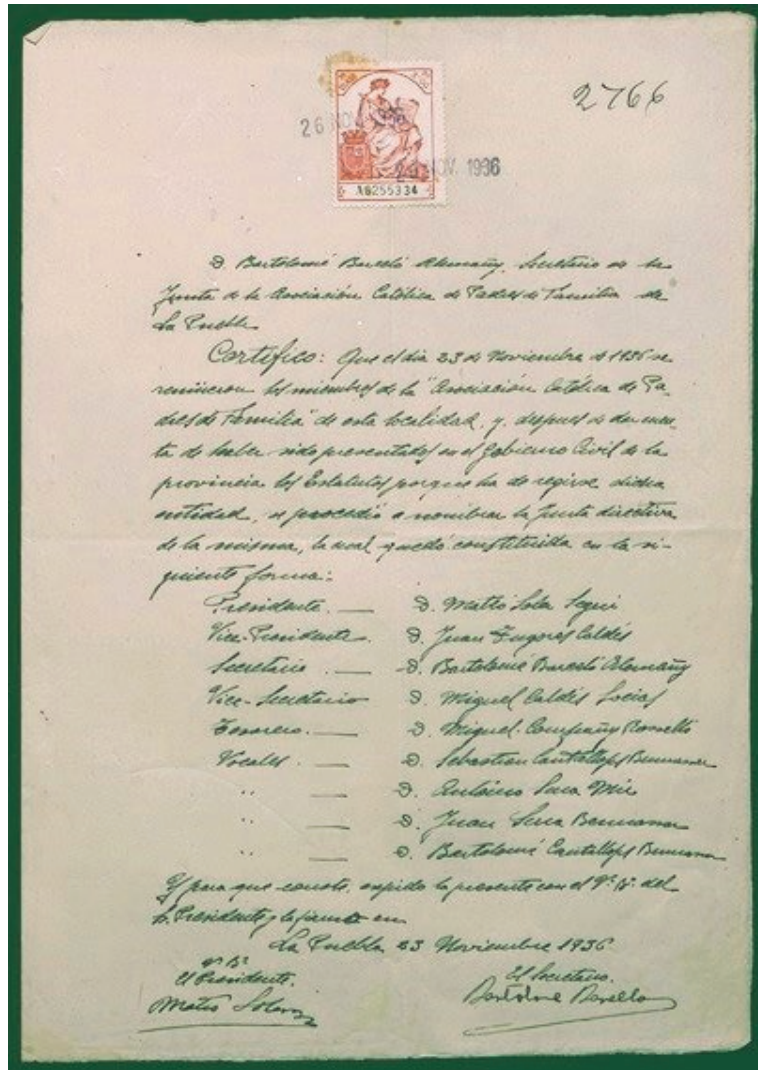 2766
26 NOV. 1936
26 NOV. 1936
A8255334
D. Bartolomé Barceló Alemañy, Secretario de la
Junta de la Asociación Católica de Padres de Familia de
La Puebla
Certifico: Que el dia 23 de Noviembre de 1936 se
reunieron los miembros de la "Asociación Católica de Pa-
dres de Familia" de esta localidad, y, despues de dar cuen-
ta de haber sido presentados en el Gobierno Civil de la
provincia los Estatutos porque ha de regirse dicha
entidad, se procedió a nombrar la Junta directiva
de la misma, la cual quedó constituida en la si-
guiente forma:
Presidente. — D. Mateo Soler Segui
Vice-Presidente. D. Juan Fugores Caldés
Secretario. — D. Bartolomé Barceló Alemañy
Vice-Secretario D. Miguel Caldés Socias
Tesorero. — D. Miguel Company Rosselló
Vocales. — D. Sebastian Cantallops Bennasar
" — D. Antonio Serra Mir
" — D. Juan Serra Bennasar
" — D. Bartolomé Cantallops Bennasar
Y para que conste, expido la presente con el Vº. Bº. del
Sr. Presidente y la firmo en
La Puebla 23 Noviembre 1936
Vº Bº
El Presidente. El Secretario.
Mateo Soler Bartolomé Barceló